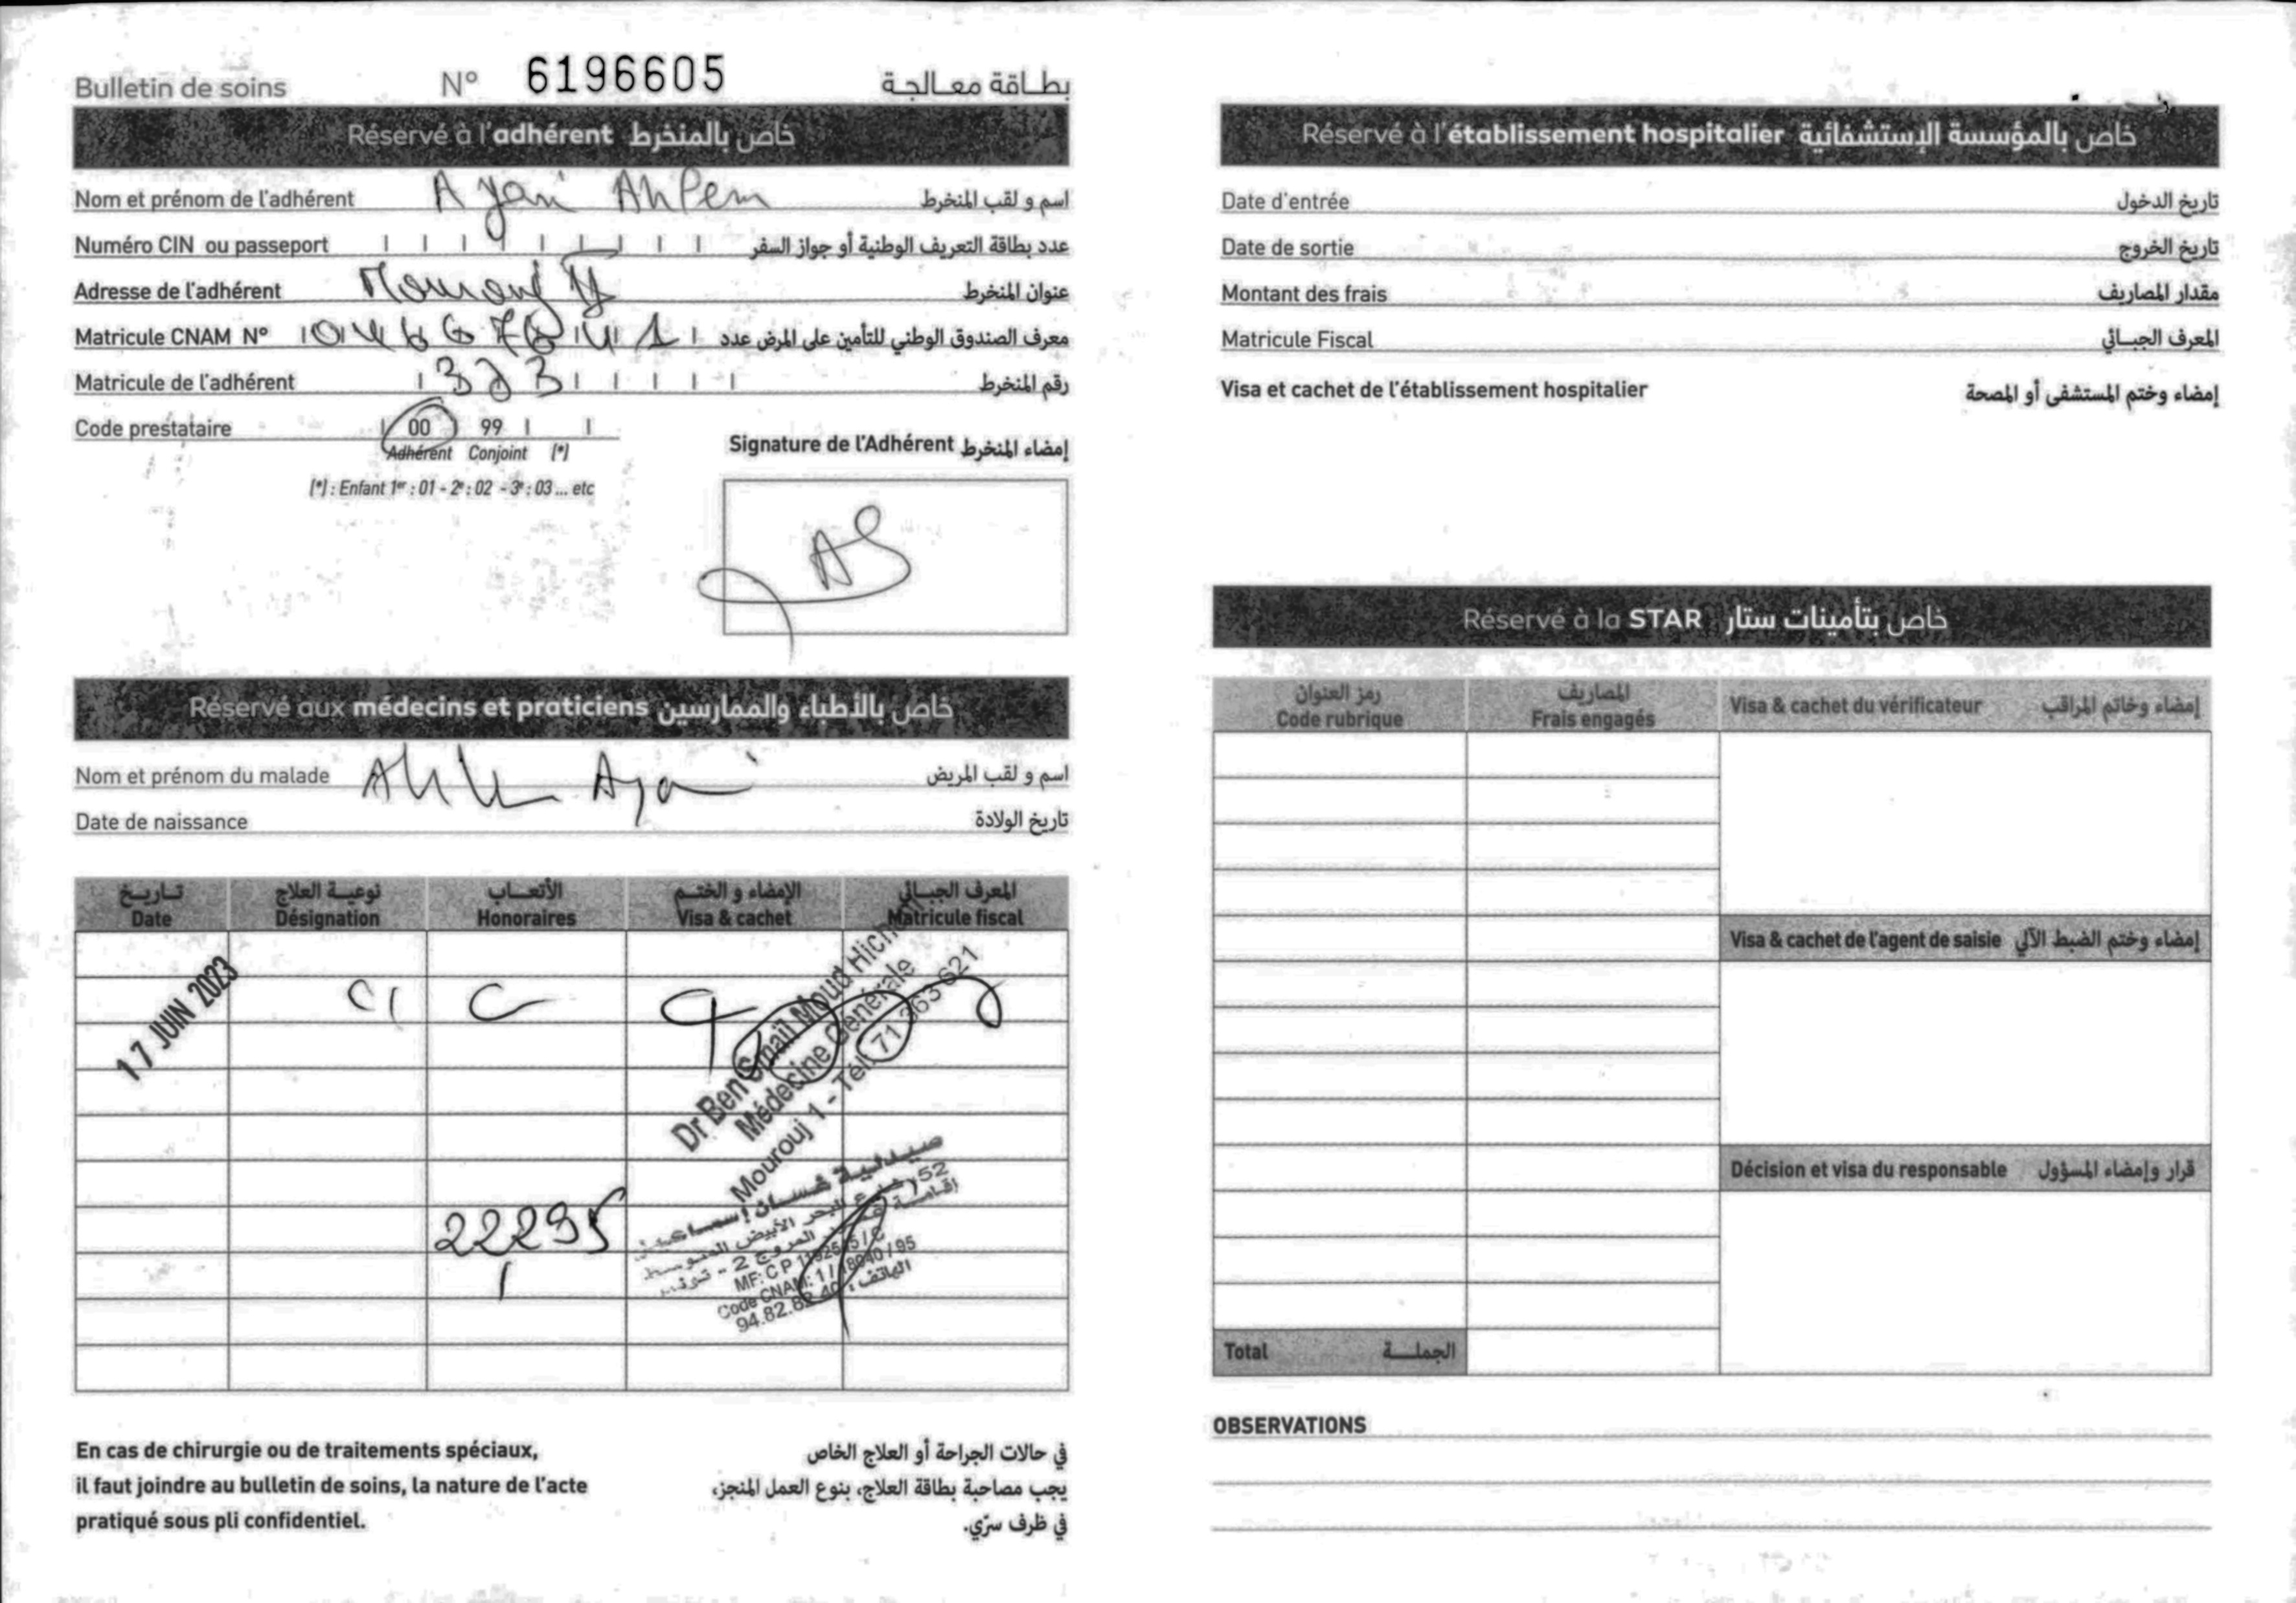 Bulletin de soins N° 6196605 بطاقة معالجة
Réservé à l'adhérent خاص بالمنخرط
Nom et prénom de l'adhérent Ayari Ahlem اسم و لقب المنخرط
Numéro CIN ou passeport عدد بطاقة التعريف الوطنية أو جواز السفر
Adresse de l'adhérent عنوان المنخرط
Matricule CNAM N° معرف الصندوق الوطني للتأمين على المرض عدد
Matricule de l'adhérent رقم المنخرط
Code prestataire 00 99
Adhérent Conjoint (*)
(*) : Enfant 1er : 01 - 2e : 02 - 3e : 03 ... etc
Signature de l'Adhérent إمضاء المنخرط
AS
Réservé aux médecins et praticiens خاص بالأطباء والممارسين
Nom et prénom du malade اسم و لقب المريض
Date de naissance تاريخ الولادة
تاريخ نوعية العلاج الأتعاب الإمضاء و الختم المعرف الجبائي
Date Désignation Honoraires Visa & cachet Matricule fiscal
17 JUIN 2023
Dr Ben Smail Moud Hichem
Médecine Générale
Mourouj 1 - Tél: 71 363 621
22295
52
MF: C P
Code CNAM: 1 / 18040 / 95
الهاتف :
En cas de chirurgie ou de traitements spéciaux,
il faut joindre au bulletin de soins, la nature de l'acte
pratiqué sous pli confidentiel.
في حالات الجراحة أو العلاج الخاص
يجب مصاحبة بطاقة العلاج، بنوع العمل المنجز،
في ظرف سرّي.
Réservé à l'établissement hospitalier خاص بالمؤسسة الإستشفائية
Date d'entrée تاريخ الدخول
Date de sortie تاريخ الخروج
Montant des frais مقدار المصاريف
Matricule Fiscal المعرف الجبائي
Visa et cachet de l'établissement hospitalier إمضاء وختم المستشفى أو المصحة
Réservé à la STAR خاص بتأمينات ستار
رمز العنوان المصاريف
Code rubrique Frais engagés Visa & cachet du vérificateur إمضاء وخاتم المراقب
Visa & cachet de l'agent de saisie إمضاء وختم الضبط الآلي
Décision et visa du responsable قرار وإمضاء المسؤول
Total الجملة
OBSERVATIONS